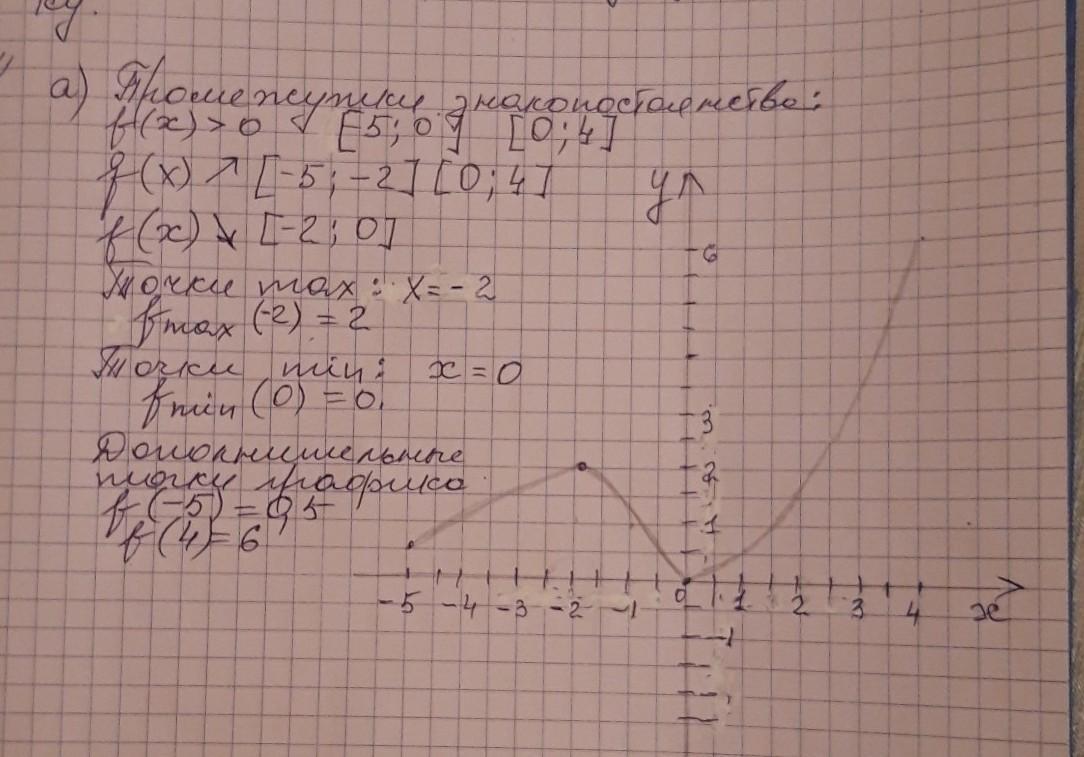 ку.
а) Промежутки знакопостоянства:
f(x) > 0 [-5; 0] [0; 4]
f(x) ↗ [-5; -2] [0; 4]
f(x) ↘ [-2; 0]
Точки max: x = -2
fmax (-2) = 2
Точки min: x = 0
fmin (0) = 0.
Дополнительные
точки графика
f(-5) = 0,5
f(4) = 6
y
6
3
2
1
-5 -4 -3 -2 -1 0 1 2 3 4 x
-1